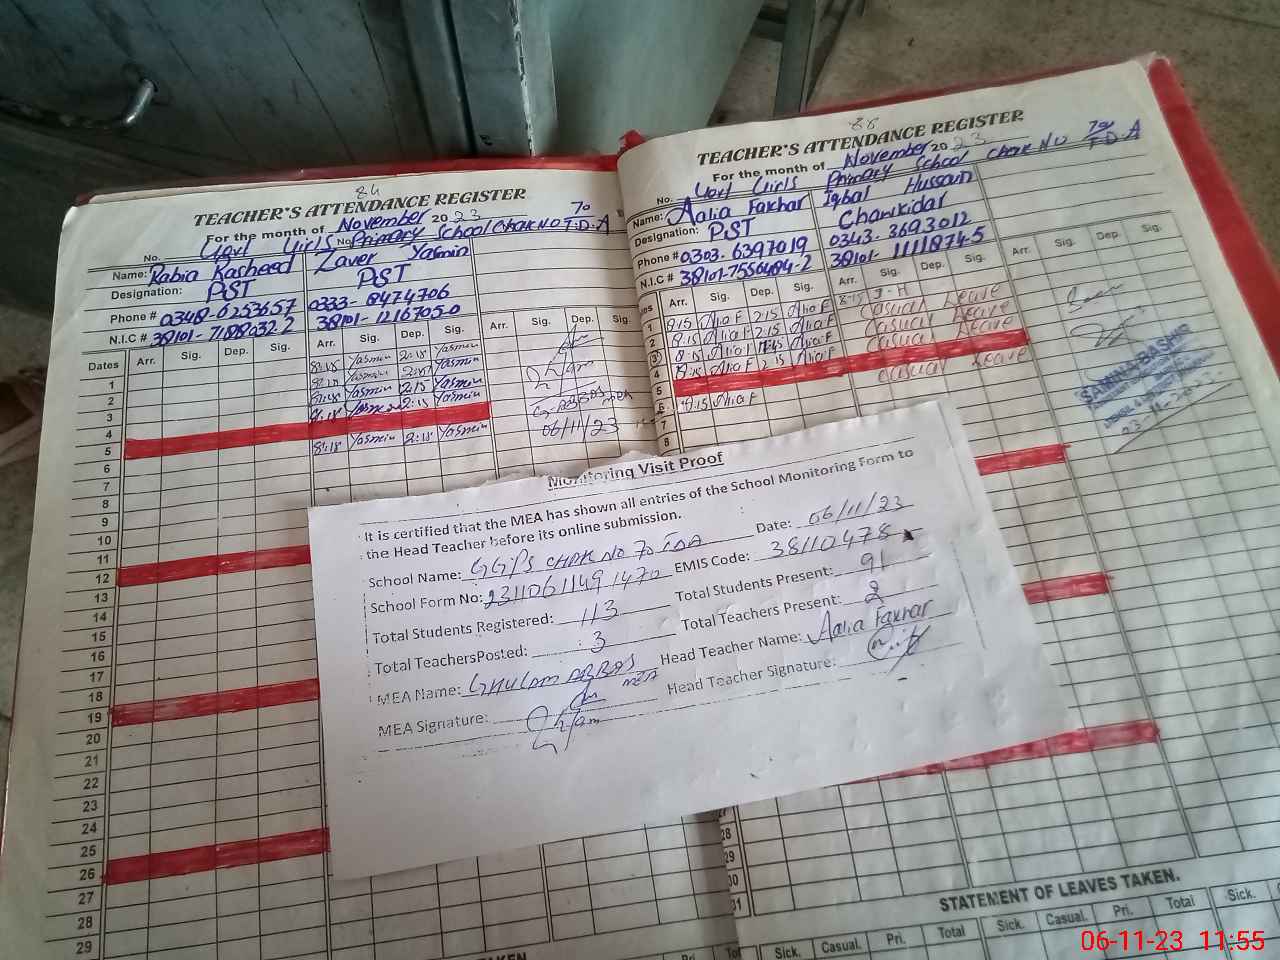 84
TEACHER'S ATTENDANCE REGISTER
For the month of November 2023
No. Govt Girls Primary School Chak No 70 T.D.A
Name: Rabia Rasheed Zaver Yasmin
Designation: PST PST
Phone # 0348-6253657 0333-8474706
N.I.C #
Dates Arr. Sig. Dep. Sig. Arr. Sig. Dep. Sig. Arr. Sig. Dep. Sig.
1 8:15 Yasmin 2:15 Yasmin
2 8:15 Yasmin 2:15 Yasmin
3 8:15 Yasmin 2:15 Yasmin
4 8:15 Yasmin 2:15 Yasmin
5
6 8:15 Yasmin 2:15 Yasmin
06/11/23
7
8
9
10
11
12
13
14
15
16
17
18
19
20
21
22
23
24
25
26
27
28
29
88
TEACHER'S ATTENDANCE REGISTER
For the month of November 2023
No. Govt Girls Primary School Chak No 70 T.D.A
Name: Aalia Fakhar Iqbal Hussain
Designation: PST Chawkidar
Phone # 0303-6397019 0343-3693012
N.I.C # 38101-7556484-2 38101-1111874-5
Arr. Sig. Dep. Sig. Arr. Sig. Dep. Sig. Arr. Sig. Dep. Sig.
1 8:15 Alia F 2:15 Alia F 8:15 I-H
2 8:15 Alia F 2:15 Alia F Casual Leave
3 8:15 Alia F Alia F Casual Leave
4 8:15 Alia F 2:15 Alia F Casual Leave
5
6 8:15 Alia F Casual Leave
7
8
SAMINA BASHIR
28
29
30
31
STATEMENT OF LEAVES TAKEN.
Sick. Casual. Pri. Total Sick. Casual. Pri. Total Sick.
Monitoring Visit Proof
It is certified that the MEA has shown all entries of the School Monitoring Form to
the Head Teacher before its online submission.
School Name: GGPS CHAK NO 70 TDA Date: 06/11/23
School Form No: 2311061149 1470 EMIS Code: 38110478
Total Students Registered: 113 Total Students Present: 91
Total TeachersPosted: 3 Total Teachers Present: 2
MEA Name: GHULAM ABBAS MEA Head Teacher Name: Aalia Fakhar
MEA Signature: Head Teacher Signature:
06-11-23 11:55